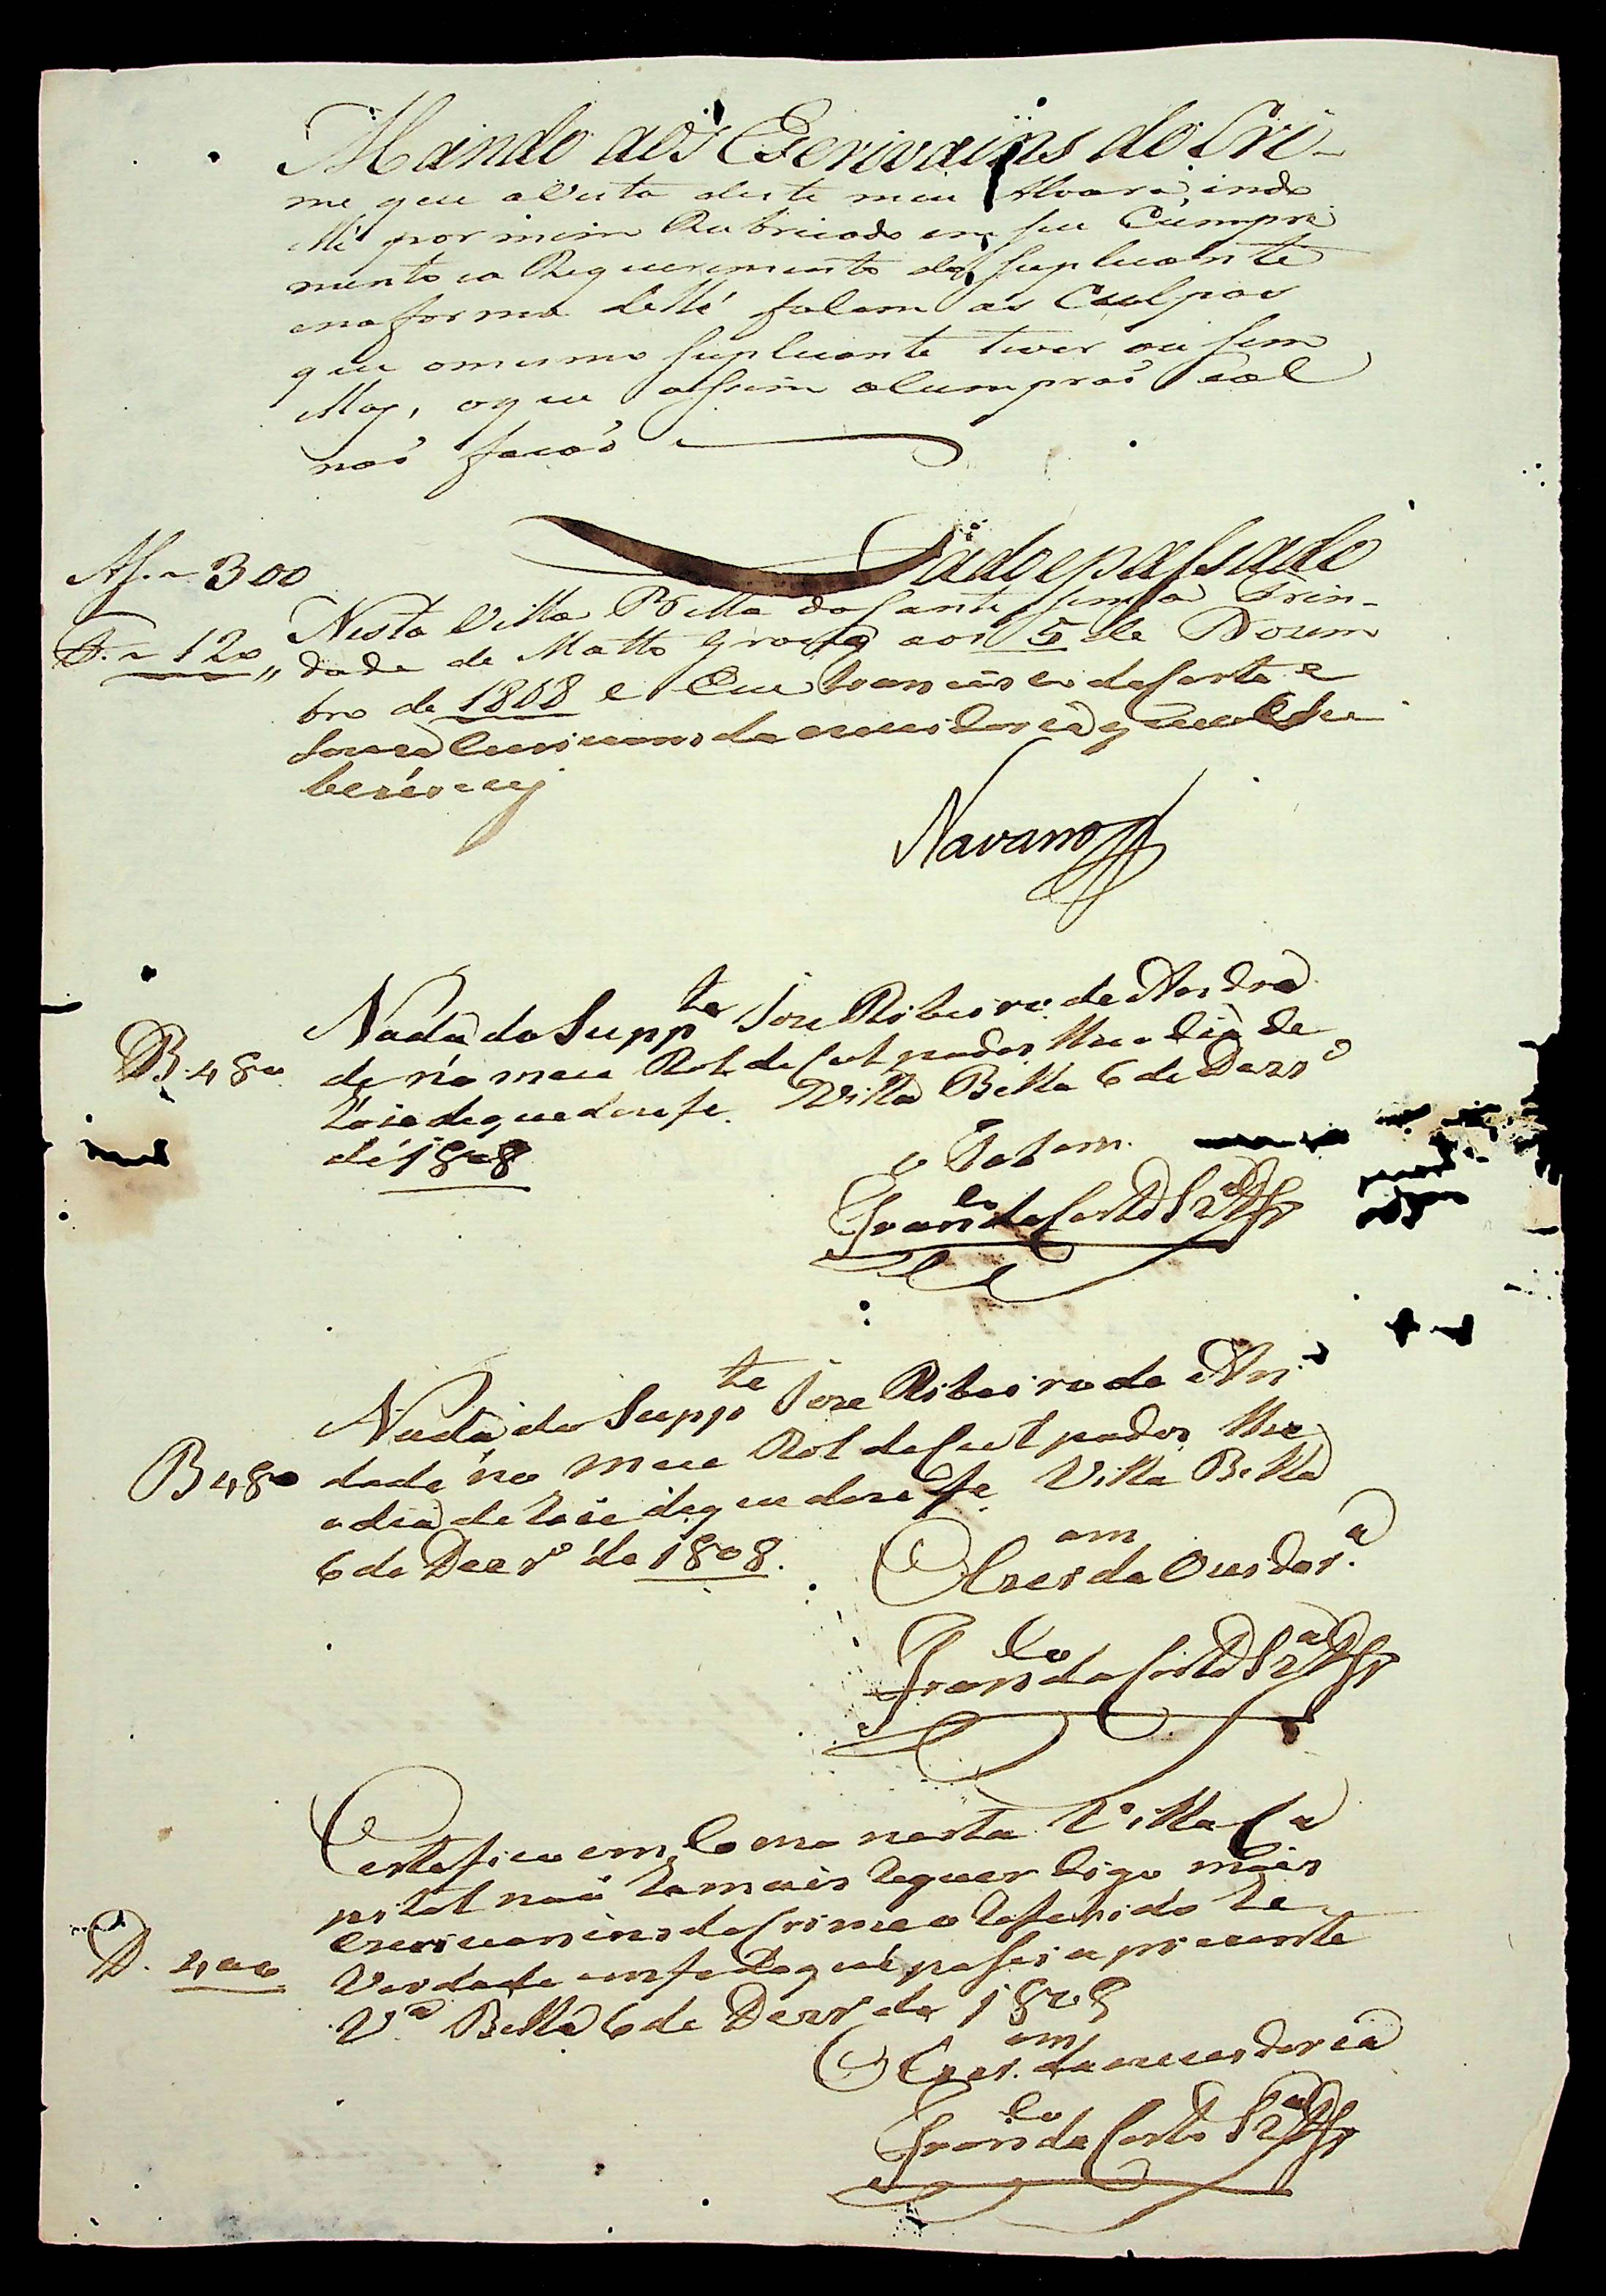 Mando aos Escrivains do Cri-
me que a Vista deste meu Alvará indo
elle por mim Rubricado em seu Cumpri
mento ea Requerimento do Suplicante
enaforma delle falem as Culpas
que omesmo Suplicante tiver ou sem
ellas, oque assim cumpraõ eal
naõ façaõ
Dado epassado
As. ~ 300
Nesta Villa Bella da Santissima Trin-
D. ~ 120
dade de Matto Grosso aos 5 de Dezem
bro de 1808 e Eu Francisco da Costa e
Souza Escrivam da ouvidoria que o Sub
escrevy
Navarro
Nada do Supp.te Joze Ribeiro de Andra
B. 480
de no meu Rol de Culpados the o dia de
hoie deque dou fe. Villa Bella 6 de Dezr.o
de 1808
o Tabam.
Fran.co da Costa Sz.a
Nada do Supp.te Joze Ribeiro de An
B 480
dade no meu Rol de Culpados the
o dia de hoie deque dou fe Villa Bella
6 de Dezr.o de 1808.
O Escr.am da Ouvidor.a
Fran.co da Costa Sz.a
Certefico em Como nesta Villa Ca
pital naõ ha mais digo mais
Escrivains do Crime o Referido he
D. 400
Verdade emfe do que pasei a prezente
V.a Bella 6 de Dezr.o de 1808
O Escr.am da ouvidoria
Fran.co da Costa Sz.a